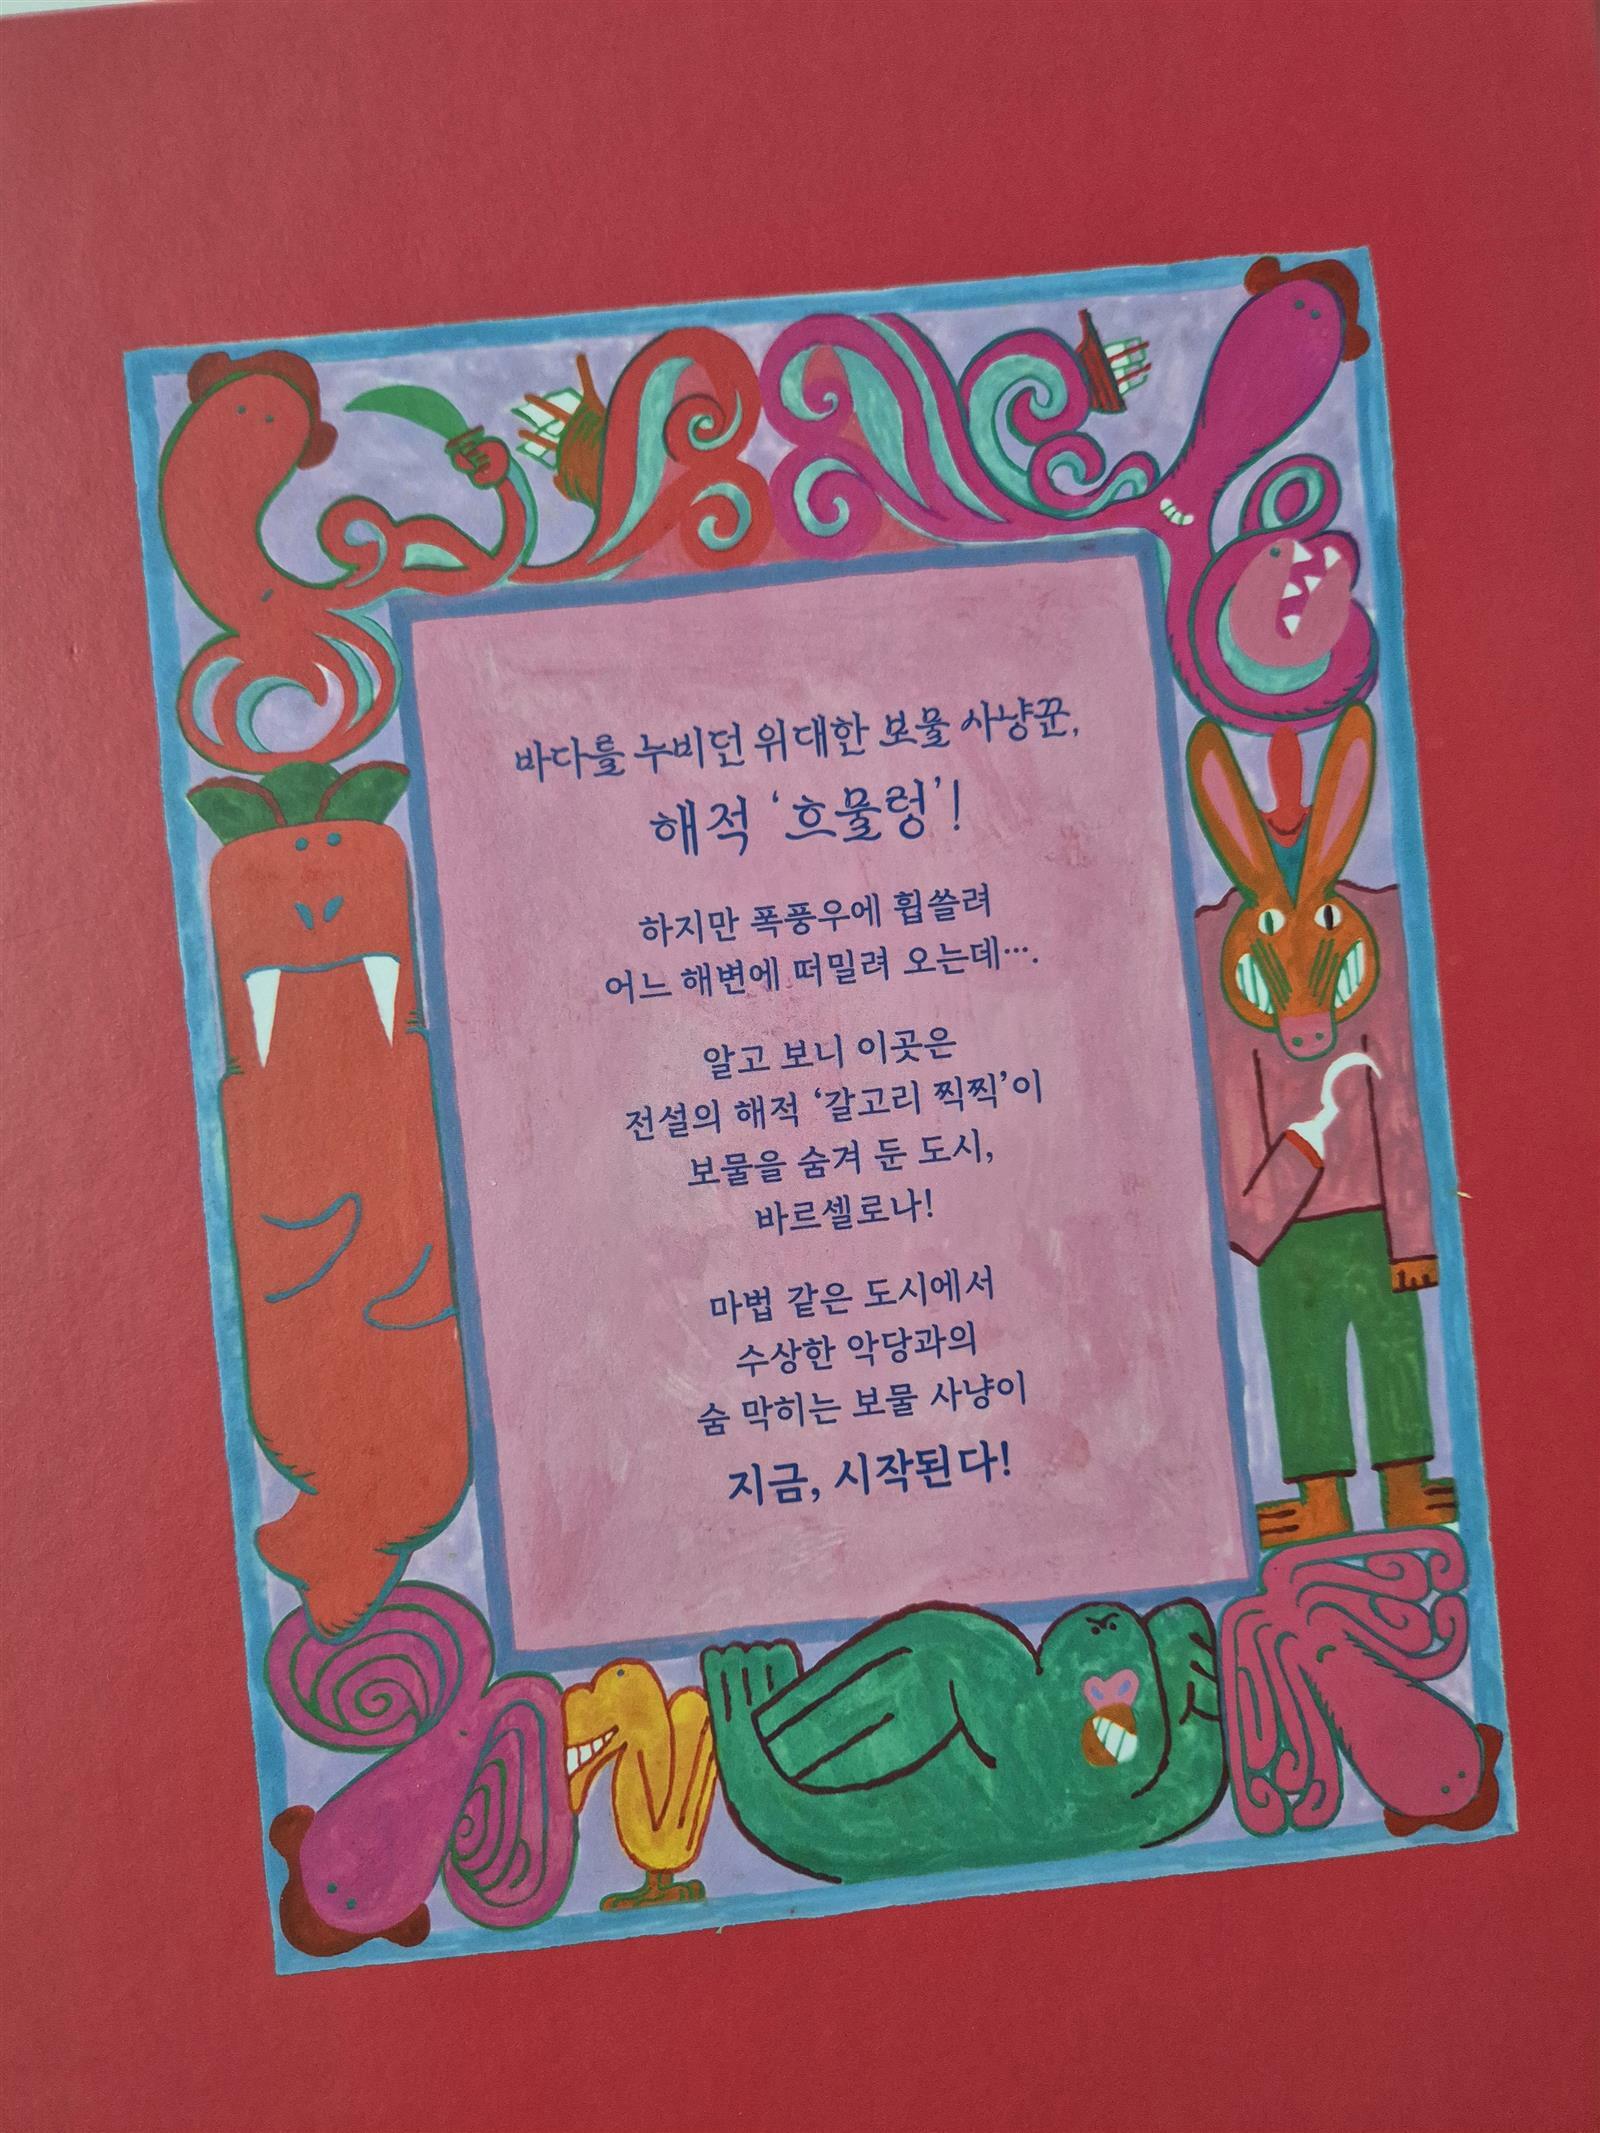 바다를 누비던 위대한 보물 사냥꾼,
해적 ‘흐물렁’!
하지만 폭풍우에 휩쓸려
어느 해변에 떠밀려 오는데….
알고 보니 이곳은
전설의 해적 ‘갈고리 찍찍’이
보물을 숨겨 둔 도시,
바르셀로나!
마법 같은 도시에서
수상한 악당과의
숨 막히는 보물 사냥이
지금, 시작된다!